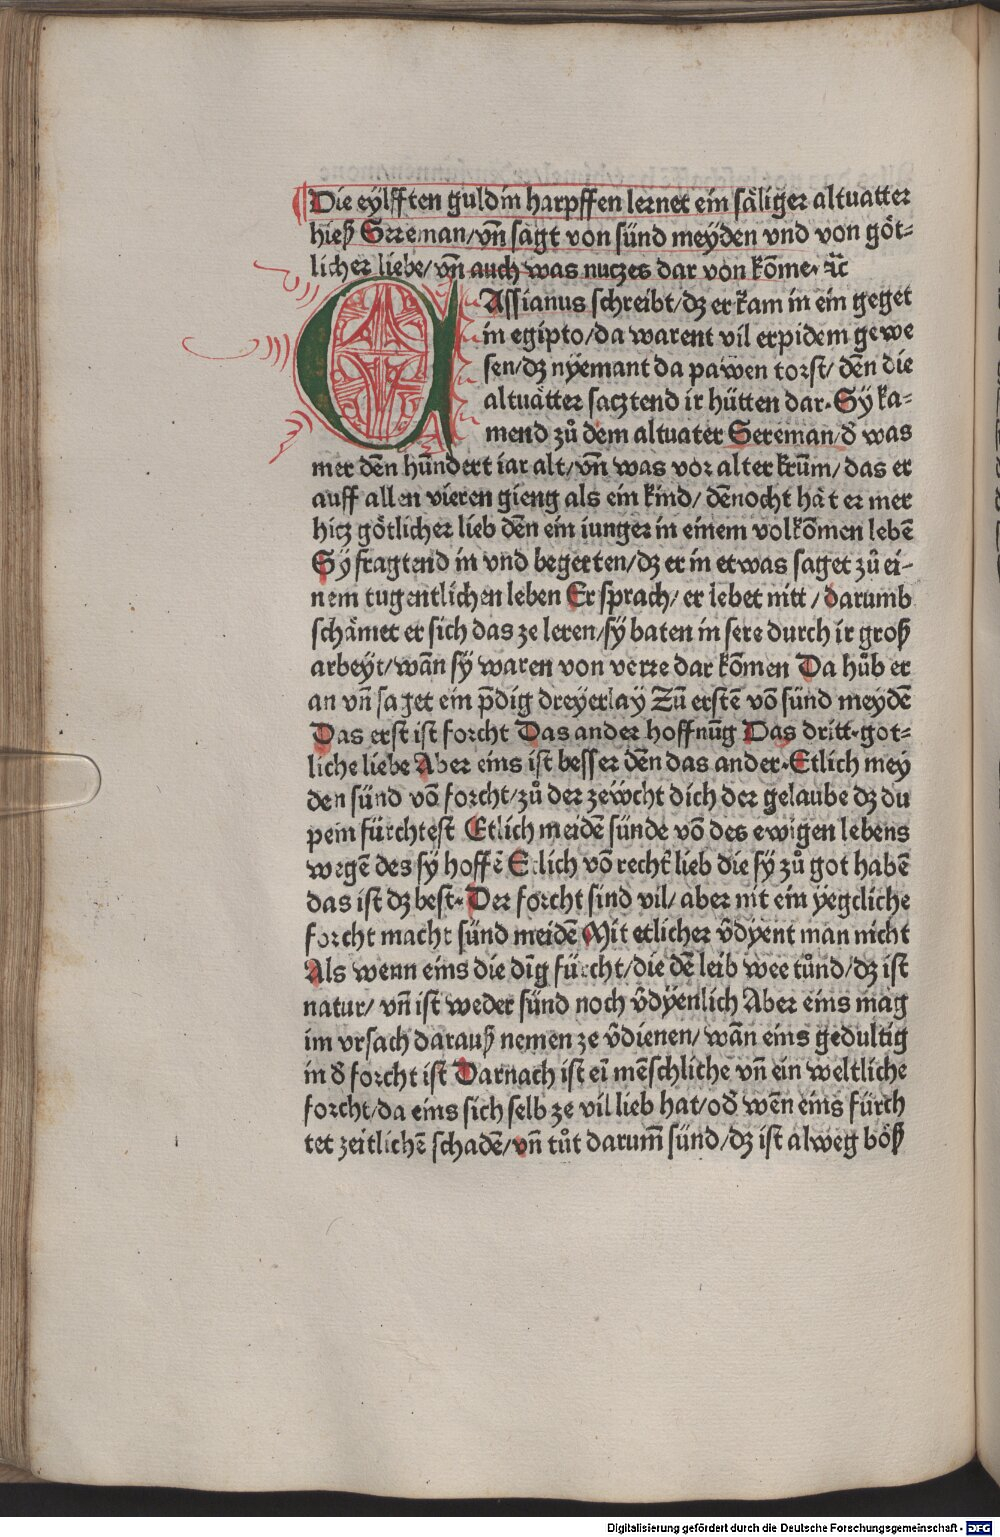 Die eylfften guldin harpffen lernet ein såliger altuatter
hieß Serreman/vn̄ sagt von sünd meÿden vnd von göt⸗
licher liebe/vn̄ auch was nuczes dar von kōme. ꝛc̄
CAssianus schreibt/dʒ er kam in ein geget
in egipto/da warent vil erpidem gewe
sen/dʒ nyemant da pawen torst/ dēn die
altuåtter sacztend ir hütten dar. Sÿ ka⸗
mend zů dem altuater Sereman/d̄ was
mer dēn hundert iar alt/vn̄ was vor alter krūm/das er
auff allen vieren gieng als ein kind/ dēnocht håt er mer
hicz götlicher lieb dēn ein iunger in einem volkōmen lebē
Sÿ fragtend in vnd begerten/dʒ er in etwas saget zů ei⸗
nem tugentlichen leben Er sprach/ er lebet nitt/darumb
schåmet er sich das ze leren/sÿ baten in sere durch ir groß
arbeyt/wān sÿ waren von verre dar kōmen Da hůb er
an vn̄ saget ein p̄dig dreyerlaÿ Zū erstē vō sünd meydē
Das erst ist forcht Das ander hoffnūg Das dritt.got⸗
liche liebe Aber eins ist besser dēn das ander.Etlich mey
den sünd vō forcht/zů der zewcht dich der gelaube dʒ du
pein fürchtest Etlich meidē sünde vō des ewigen lebens
wegē des sÿ hoffē Etlich vō recht̄ lieb die sÿ zů got habē
das ist dʒ best. Der forcht sind vil/ aber nit ein yegcliche
forcht macht sünd meidē Mit etlicher v̄dyent man nicht
Als wenn eins die dīg fürcht/die dē leib wee tůnd/dʒ ist
natur/ vn̄ ist weder sünd noch v̄dÿenlich Aber eins mag
im vrsach darauß nemen ze v̄dienen/ wān eins gedultig
in d̄ forcht ist Darnach ist eī mēschliche vn̄ ein weltliche
forcht/da eins sich selb ze vil lieb hat/od̄ wēn eins fürch
tet zeitlichē schadē/vn̄ tůt darum̄ sünd/dʒ ist alweg böß
Digitalisierung gefördert durch die Deutsche Forschungsgemeinschaft - DFG